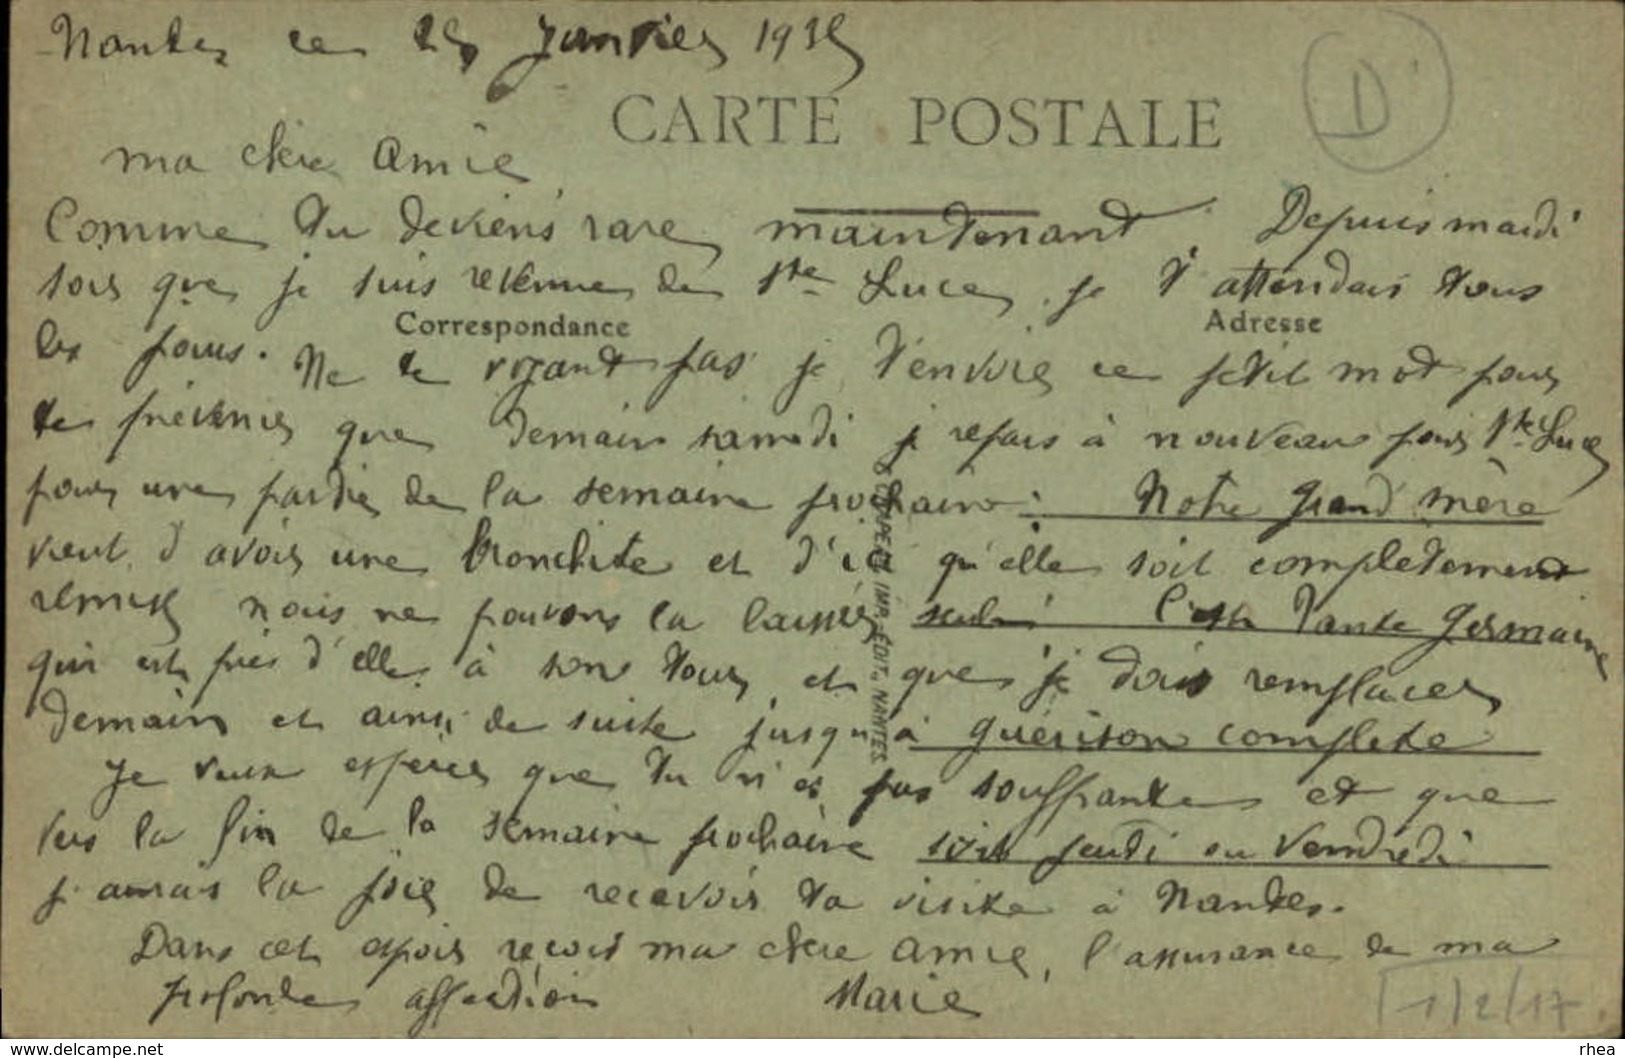 Nantes ce 25 Janvier 1935
CARTE POSTALE
D
ma chère Amie
Comme tu deviens rare maintenant. Depuis mardi
soir que je suis revenue de Ste Luce, je t'attendais tous
Correspondance
Adresse
les jours. Ne te voyant pas je t'envoie ce petit mot pour
te prévenir que demain samedi je repars à nouveau pour Ste Luce
pour une partie de la semaine prochaine : Notre Grand'mère
vient d'avoir une bronchite et d'ici qu'elle soit complètement
remise nous ne pouvons la laisser seule. C'est Tante Germaine
qui est près d'elle à son tour et que je dois remplacer
demain et ainsi de suite jusqu'à guérison complète
Je veux espérer que tu n'es pas souffrante et que
vers la fin de la semaine prochaine soit jeudi ou vendredi
j'aurais la joie de recevoir ta visite à Nantes.
Dans cet espoir reçois ma chère Amie, l'assurance de ma
profonde affection Marie
IMP. ÉDIT., NANTES
1/2/17
delcampe.net
rhea